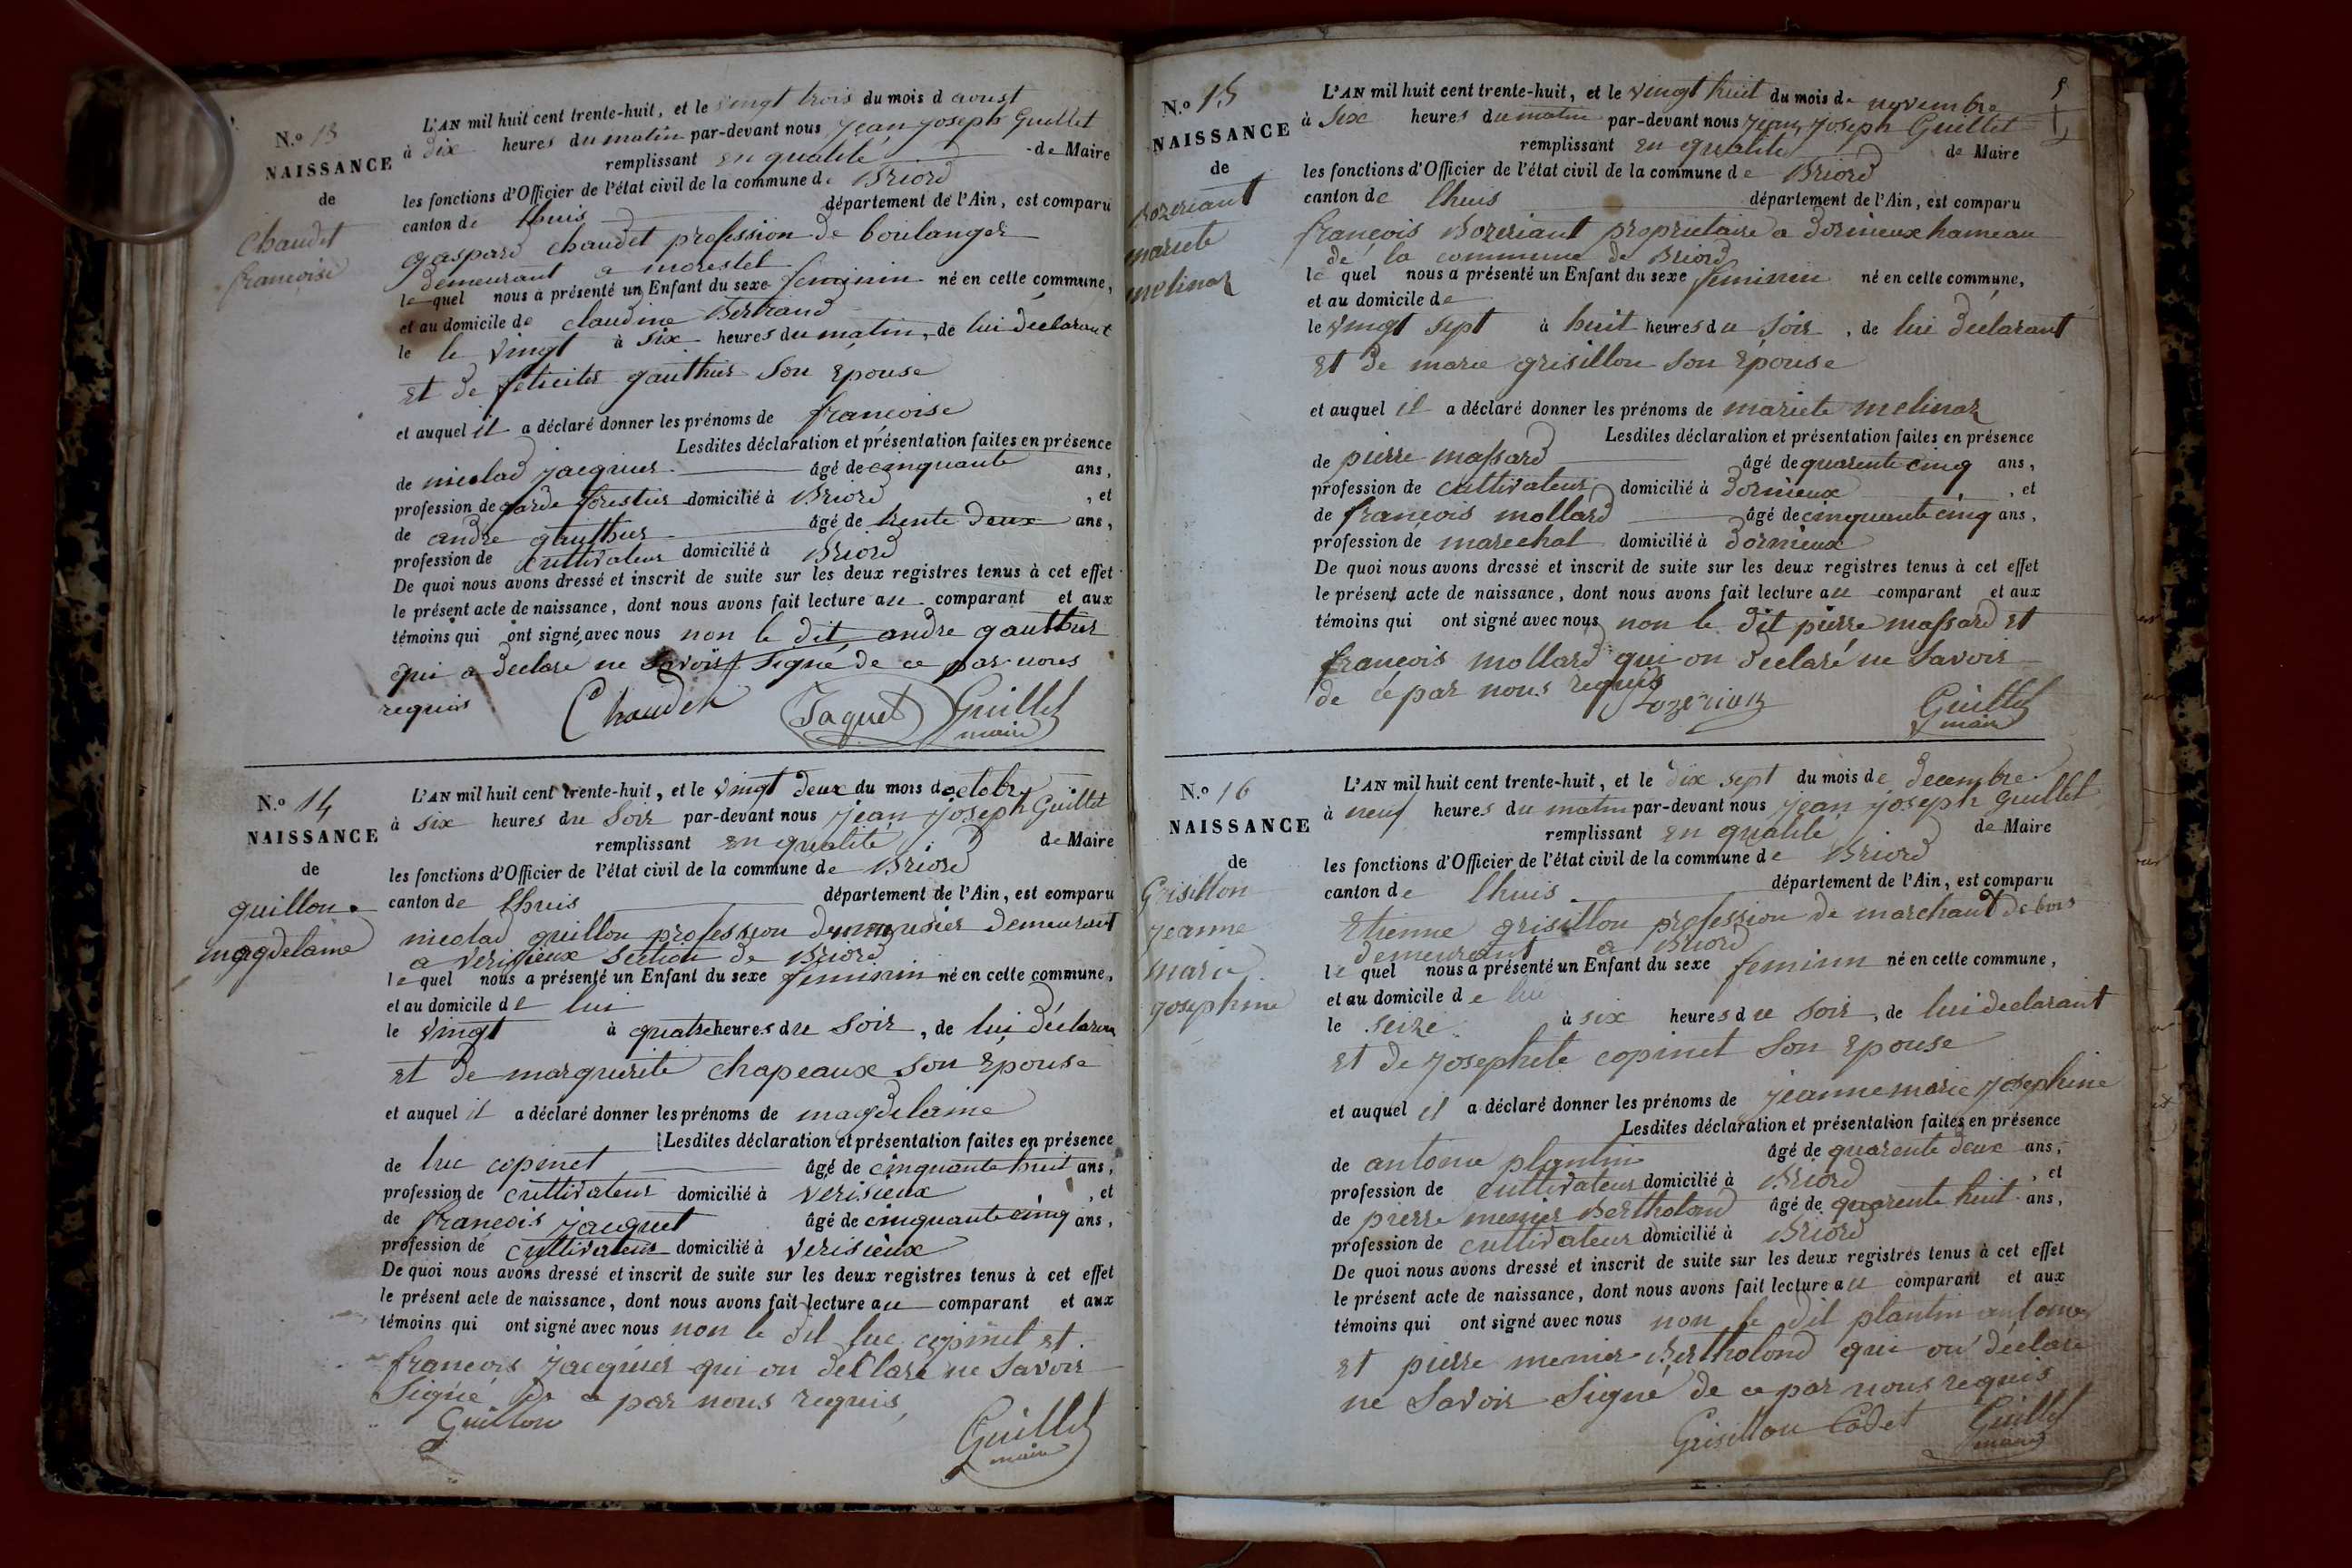 N.º 13
NAISSANCE
de
chaudet
françoise
L'AN mil huit cent trente-huit, et le vingt trois du mois d aoust
à dix heures du matin par-devant nous jean joseph Guillet
remplissant en qualité de Maire
les fonctions d'Officier de l'état civil de la commune de Briord
canton de lhuis département de l'Ain, est comparu
gaspard chaudet profession de boulanger
demeurant a morestel
le quel nous a présenté un Enfant du sexe feminin né en cette commune,
et au domicile de claudine Bertrand
le le vingt à six heures du matin, de lui déclarant
et de feliciter gauthier son épouse
et auquel il a déclaré donner les prénoms de françoise
Lesdites déclaration et présentation faites en présence
de nicolad jacquier âgé de cinquante ans,
profession de garde forestier domicilié à Briord , et
de andré gauthier âgé de trente deux ans,
profession de cultivateur domicilié à Briord
De quoi nous avons dressé et inscrit de suite sur les deux registres tenus à cet effet
le présent acte de naissance, dont nous avons fait lecture au comparant et aux
témoins qui ont signé avec nous non le dit andre gauthier
qui a declaré ne savoir signé de ce par nous
requis
Chaudet Jaquet Guillet
maire
N.º 14
NAISSANCE
de
guillon
magdelaine
L'AN mil huit cent trente-huit, et le vingt deux du mois doctobre
à six heures du soir par-devant nous jean joseph Guillet
remplissant en qualité de Maire
les fonctions d'Officier de l'état civil de la commune de Briord
canton de lhuis département de l'Ain, est comparu
nicolad guillon profession de menusier demeurant
a verisieux section de Briord
le quel nous a présenté un Enfant du sexe feminin né en cette commune,
et au domicile de lui
le vingt à quatre heures du soir, de lui déclaran
et de marguerite chapeaux son épouse
et auquel il a déclaré donner les prénoms de magdelaine
Lesdites déclaration et présentation faites en présence
de luc copinet âgé de cinquante huit ans,
profession de cultivateur domicilié à verisieux , et
de françois jacquet âgé de cinquante cinq ans,
profession de cultivateur domicilié à verisieux
De quoi nous avons dressé et inscrit de suite sur les deux registres tenus à cet effet
le présent acte de naissance, dont nous avons fait lecture au comparant et aux
témoins qui ont signé avec nous non le dit luc copinet et
françois jacquier qui on declaré ne savoir
signé de ce par nous requis
Guillon Guillet
maire
N.º 15
NAISSANCE
de
Bozeriant
mariete
melinar
L'AN mil huit cent trente-huit, et le vingt huit du mois de novembre
à six heures du matin par-devant nous jean joseph Guillet
remplissant en qualité de Maire
les fonctions d'Officier de l'état civil de la commune de Briord
canton de lhuis département de l'Ain, est comparu
françois Bozeriant propriétaire a dornieux hameau
de la commune de Briord
le quel nous a présenté un Enfant du sexe feminin né en cette commune,
et au domicile de
le vingt sept à huit heures du soir, de lui déclarant
et de marie grisillon son épouse
et auquel il a déclaré donner les prénoms de mariete melinar
Lesdites déclaration et présentation faites en présence
de pierre massard âgé de quarente cinq ans,
profession de cultivateur domicilié à dornieux , et
de françois mollard âgé de cinquante cinq ans,
profession de marechal domicilié à dornieux
De quoi nous avons dressé et inscrit de suite sur les deux registres tenus à cet effet
le présent acte de naissance, dont nous avons fait lecture au comparant et aux
témoins qui ont signé avec nous non le dit pierre massard et
françois mollard qui on declaré ne savoir
de ce par nous requis
Bozerian Guillet
maire
N.º 16
NAISSANCE
de
Grisillon
jeanne
marie
josephine
L'AN mil huit cent trente-huit, et le dix sept du mois de decembre
à neuf heures du matin par-devant nous jean joseph Guillet
remplissant en qualité de Maire
les fonctions d'Officier de l'état civil de la commune de Briord
canton de lhuis département de l'Ain, est comparu
Etienne grisillon profession de marchand de bois
demeurant a Briord
le quel nous a présenté un Enfant du sexe feminin né en cette commune,
et au domicile de lui
le seize à six heures du soir, de lui declarant
et de josephete copinet son épouse
et auquel il a déclaré donner les prénoms de jeanne marie josephine
Lesdites déclaration et présentation faites en présence
de antoine plantin âgé de quarente deux ans,
profession de cultivateur domicilié à Briord , et
de pierre menier Bertholond âgé de quarente huit ans,
profession de cultivateur domicilié à Briord
De quoi nous avons dressé et inscrit de suite sur les deux registres tenus à cet effet
le présent acte de naissance, dont nous avons fait lecture au comparant et aux
témoins qui ont signé avec nous non le dit plantin antoine
et pierre menier Bertholond qui on déclaré
ne savoir signé de ce par nous requis
Grisillon Cadet Guillet
maire